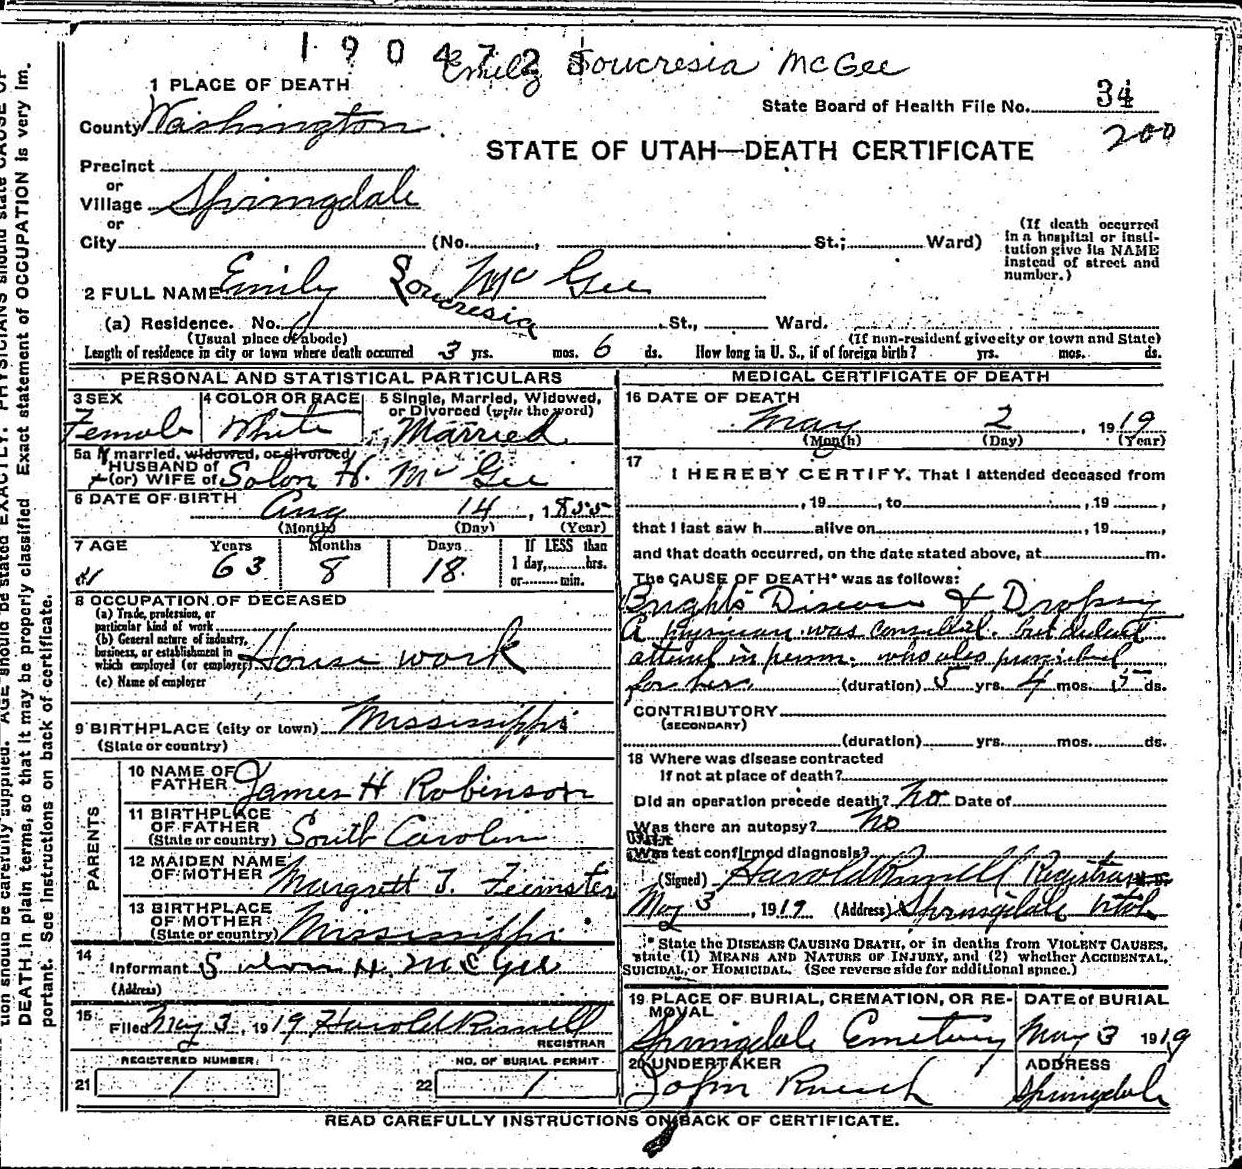 1904728
Emily Soucresia McGee
1 PLACE OF DEATH
State Board of Health File No. 34
200
County Washington
STATE OF UTAH—DEATH CERTIFICATE
Precinct
or
Village Springdale
or
City (No. , St.; Ward)
(If death occurred in a hospital or institution give its NAME instead of street and number.)
2 FULL NAME Emily Soucresia McGee
(a) Residence. No. St., Ward.
(Usual place of abode) (If non-resident give city or town and State)
Length of residence in city or town where death occurred 3 yrs. mos. 6 ds. How long in U. S., if of foreign birth? yrs. mos. ds.
PERSONAL AND STATISTICAL PARTICULARS
3 SEX
Female
4 COLOR OR RACE
White
5 Single, Married, Widowed,
or Divorced (write the word)
Married
5a If married, widowed, or divorced
HUSBAND of
(or) WIFE of Solon H. McGee
6 DATE OF BIRTH
Aug 14, 1855
(Month) (Day) (Year)
7 AGE Years Months Days If LESS than
63 8 18 1 day, hrs.
or min.
8 OCCUPATION OF DECEASED
(a) Trade, profession, or
particular kind of work
(b) General nature of industry,
business, or establishment in
which employed (or employer) House work
(c) Name of employer
9 BIRTHPLACE (city or town) Mississippi
(State or country)
PARENTS
10 NAME OF
FATHER James H Robinson
11 BIRTHPLACE
OF FATHER
(State or country) South Carolin
12 MAIDEN NAME
OF MOTHER Margrett T. Feemster
13 BIRTHPLACE
OF MOTHER
(State or country) Mississippi
14
Informant Solon H. McGee
(Address)
15 Filed May 3, 1919 Harold Russell
REGISTRAR
REGISTERED NUMBER
21 1
NO. OF BURIAL PERMIT
22 1
MEDICAL CERTIFICATE OF DEATH
16 DATE OF DEATH
May 2, 1919
(Month) (Day) (Year)
17
I HEREBY CERTIFY, That I attended deceased from
, 19 , to , 19 ,
that I last saw h alive on , 19 ,
and that death occurred, on the date stated above, at m.
The CAUSE OF DEATH* was as follows:
Brights Disease & Dropsy
A physician was consulted. but didnt
attend in person. who also prescribed
for her. (duration) 5 yrs. 4 mos. 15 ds.
CONTRIBUTORY
(SECONDARY)
(duration) yrs. mos. ds.
18 Where was disease contracted
If not at place of death?
Did an operation precede death? No Date of
Was there an autopsy? No
What
Was test confirmed diagnosis?
(Signed) Harold Russell Registrar
May 3, 1919 (Address) Springdale Utah
* State the DISEASE CAUSING DEATH, or in deaths from VIOLENT CAUSES,
state (1) MEANS AND NATURE OF INJURY, and (2) whether ACCIDENTAL,
SUICIDAL, or HOMICIDAL. (See reverse side for additional space.)
19 PLACE OF BURIAL, CREMATION, OR REMOVAL
Springdale Cemetery
DATE of BURIAL
May 3 1919
20 UNDERTAKER
John
ADDRESS
Springdale
READ CAREFULLY INSTRUCTIONS ON BACK OF CERTIFICATE.
tion should be carefully supplied. AGE should be stated EXACTLY. PHYSICIANS should state CAUSE OF
DEATH in plain terms, so that it may be properly classified. Exact statement of OCCUPATION is very im-
portant. See instructions on back of certificate.